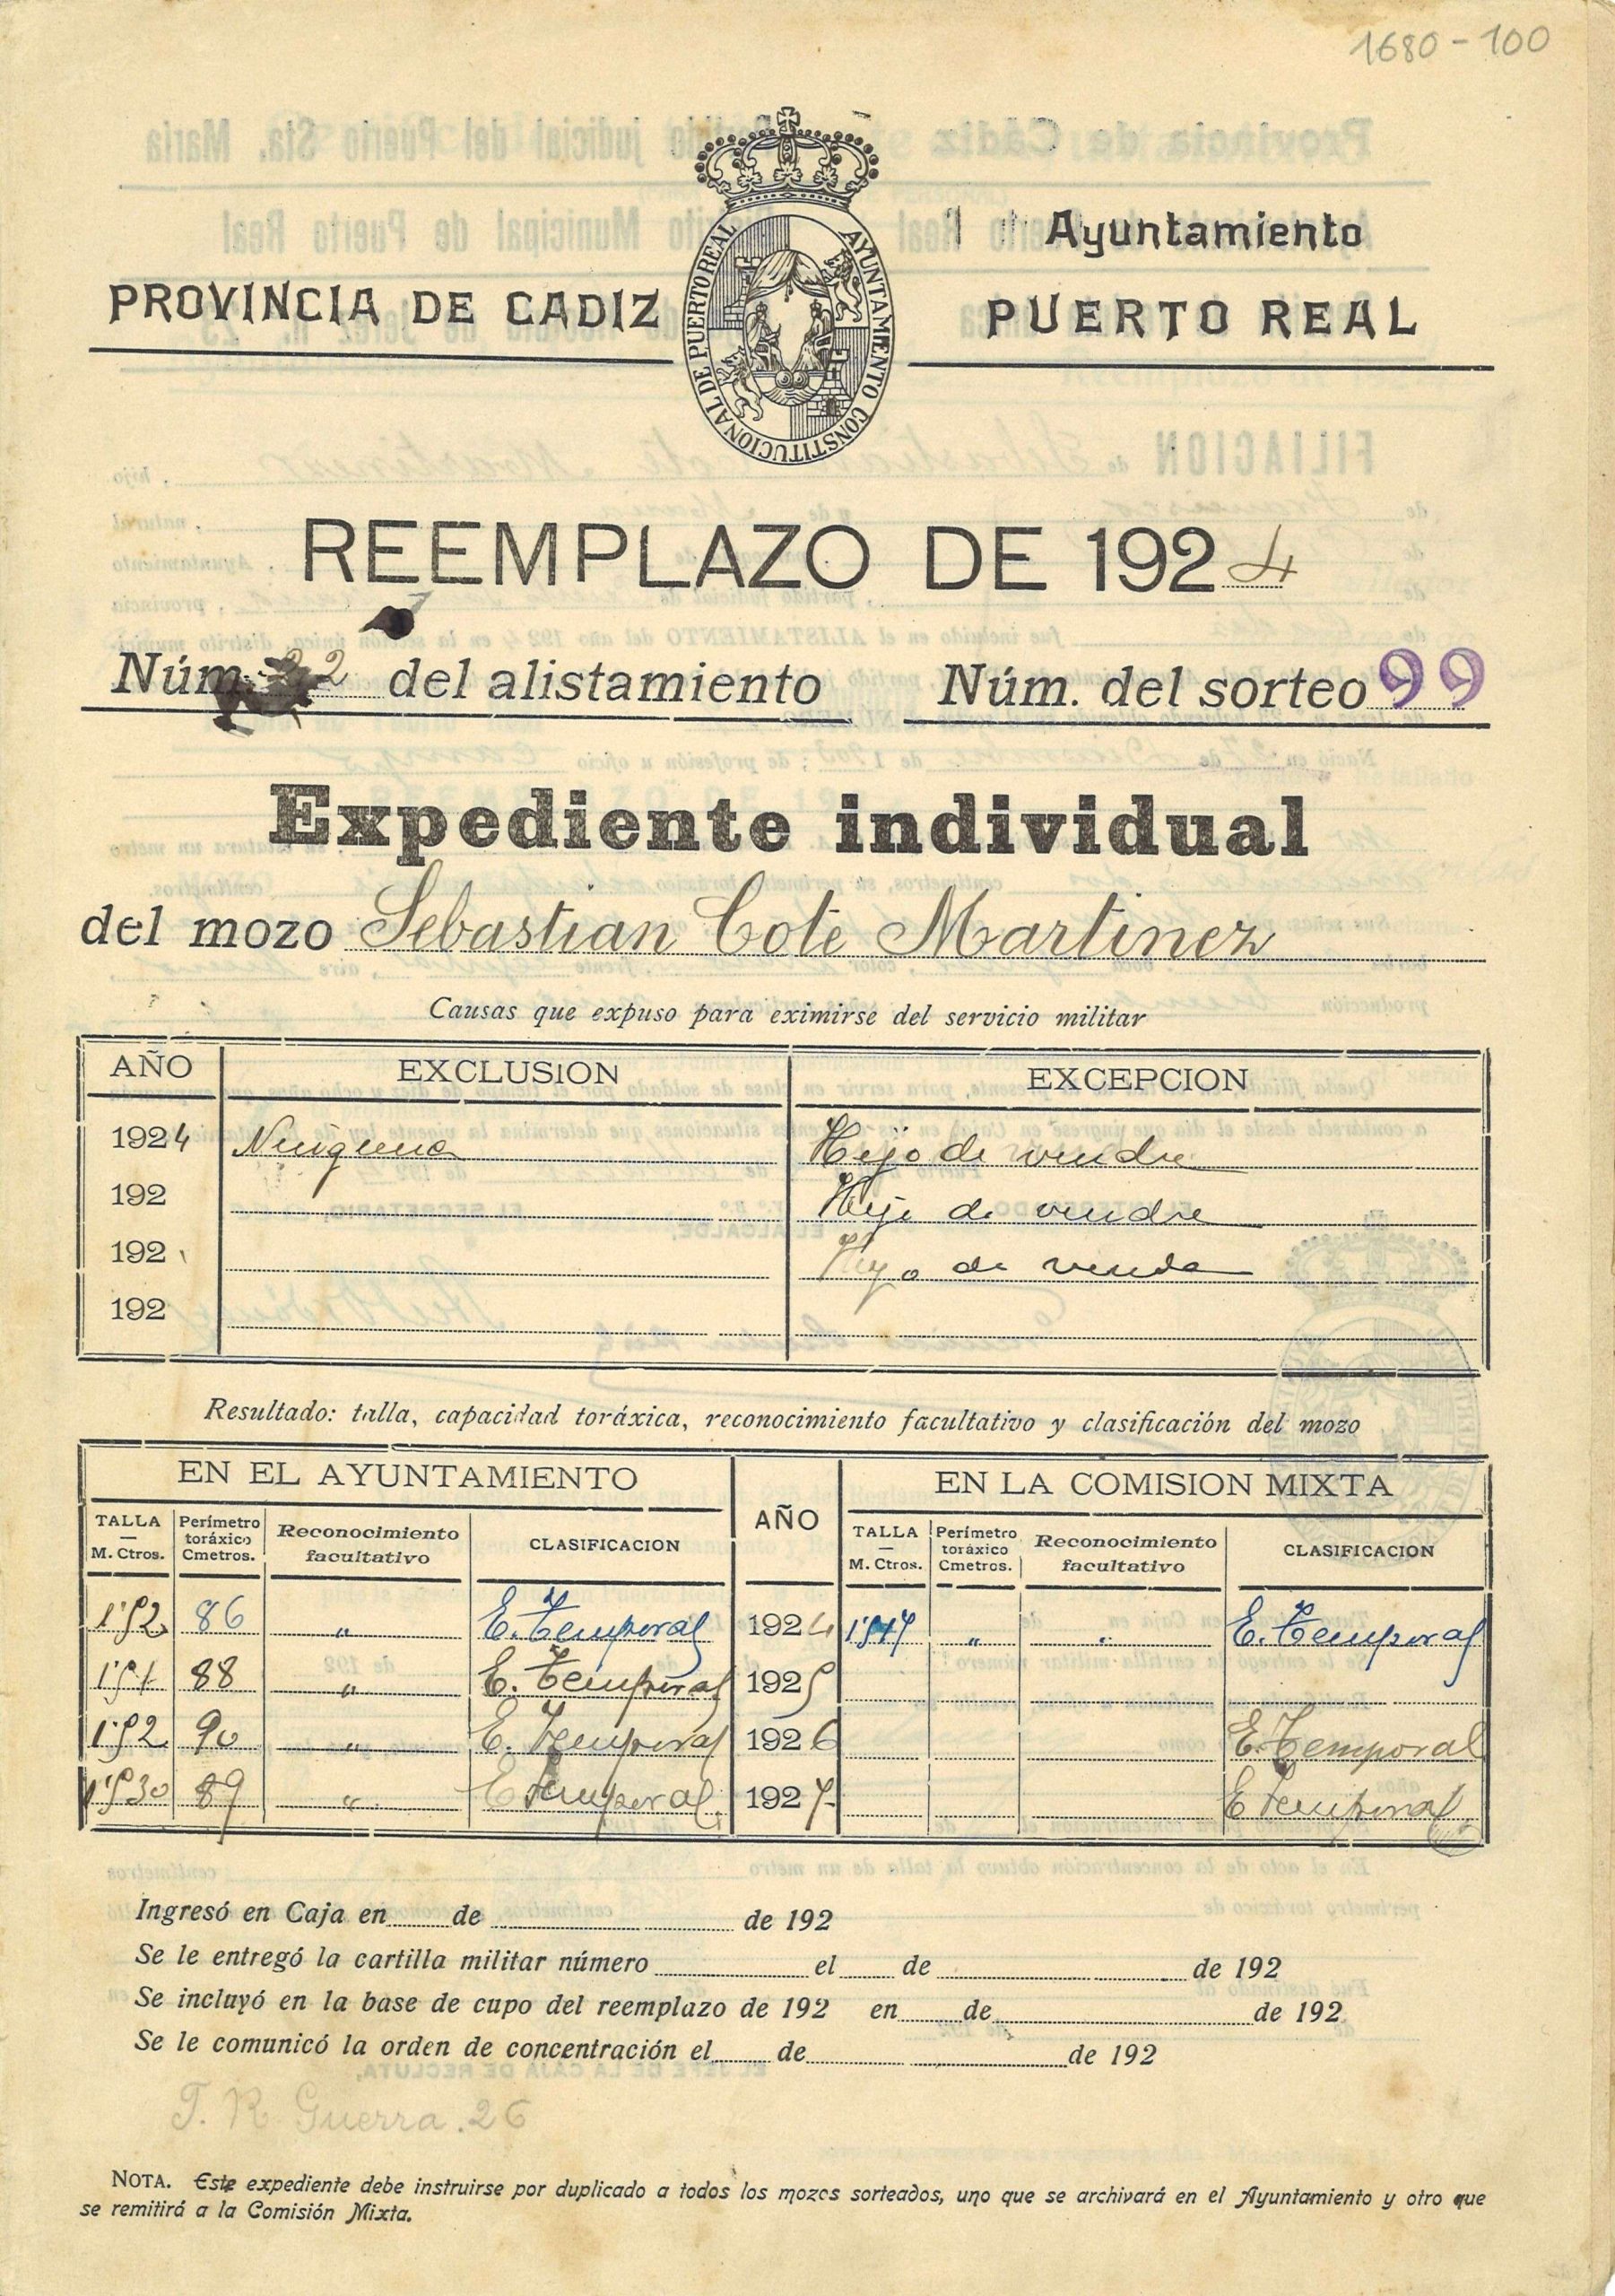 1680-100
AYUNTAMIENTO CONSTITUCIONAL DE PUERTO REAL
Ayuntamiento
PROVINCIA DE CADIZ
PUERTO REAL
REEMPLAZO DE 1924
Núm. 22 del alistamiento Núm. del sorteo 99
Expediente individual
del mozo Sebastian Cote Martinez
Causas que expuso para eximirse del servicio militar
AÑO EXCLUSION EXCEPCION
1924 Ninguna Hijo de viuda
192 Hijo de viuda
192 Hijo de viuda
192
Resultado: talla, capacidad toráxica, reconocimiento facultativo y clasificación del mozo
EN EL AYUNTAMIENTO AÑO EN LA COMISION MIXTA
TALLA — M. Ctros. Perímetro toráxico Cmetros. Reconocimiento facultativo CLASIFICACION TALLA — M. Ctros. Perímetro toráxico Cmetros. Reconocimiento facultativo CLASIFICACION
1'52 86 " E. Temporal 1924 " " E. Temporal
1'51 88 " E. Temporal 1925
1'52 90 " E. Temporal 1926 E. Temporal
1'530 89 " E. Temporal 1927 E Temporal
Ingresó en Caja en de de 192
Se le entregó la cartilla militar número el de de 192
Se incluyó en la base de cupo del reemplazo de 192 en de de 192
Se le comunicó la orden de concentración el de de 192
T. R. Guerra. 26
NOTA. Este expediente debe instruirse por duplicado a todos los mozos sorteados, uno que se archivará en el Ayuntamiento y otro que
se remitirá a la Comisión Mixta.